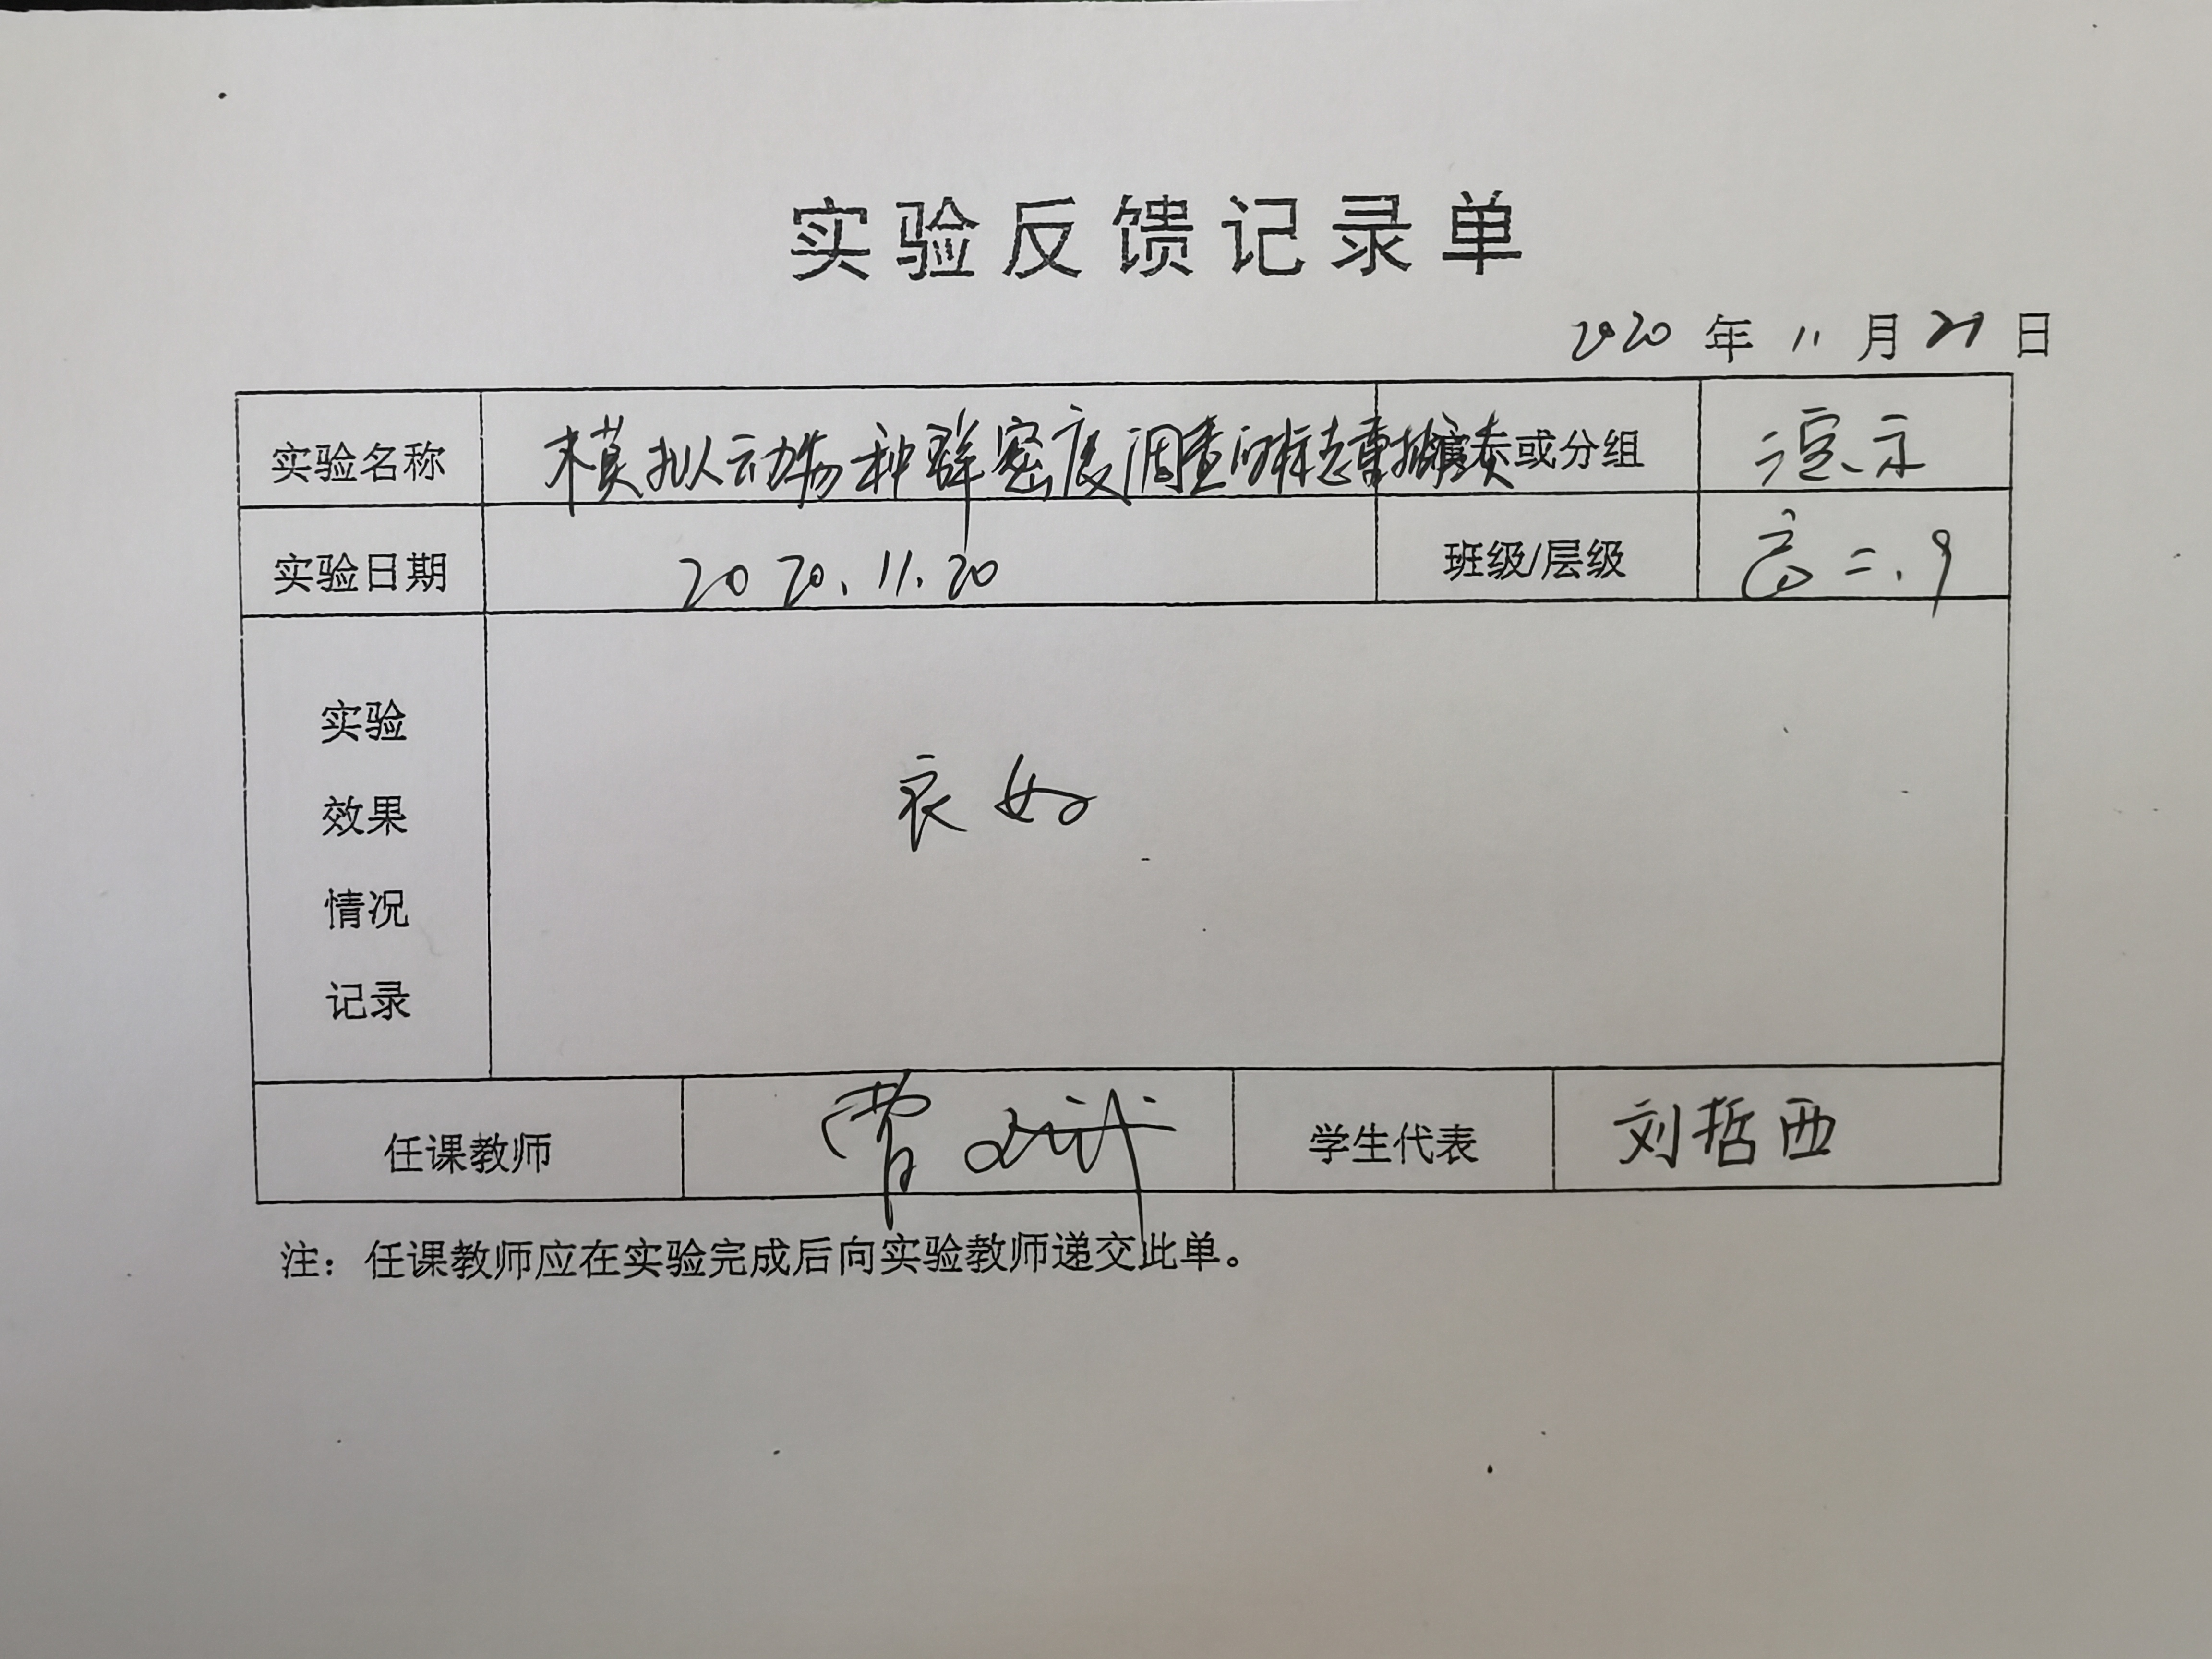 实验反馈记录单
2020 年 11 月 21 日
实验名称 模拟动物种群密度调查的标志重捕法 演示或分组 演示
实验日期 2020.11.20 班级/层级 高二.9
实验 效果 情况 记录 良好
任课教师 曹 学生代表 刘哲西
注：任课教师应在实验完成后向实验教师递交此单。